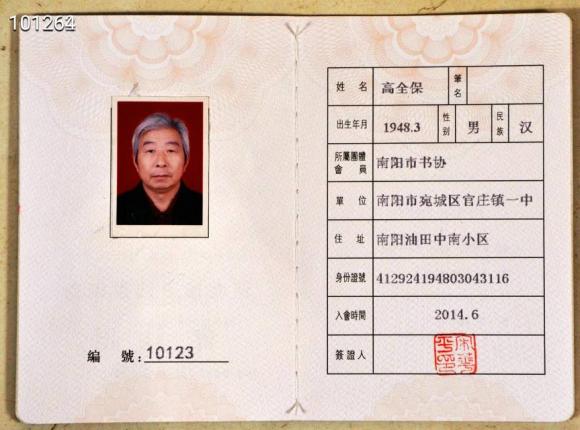 101264
姓 名 高全保 筆名
出生年月 1948.3 性别 男 民族 汉
所屬團體會員 南阳市书协
單 位 南阳市宛城区官庄镇一中
住 址 南阳油田中南小区
身份證號 412924194803043116
入會時間 2014.6
簽證人
編 號:10123